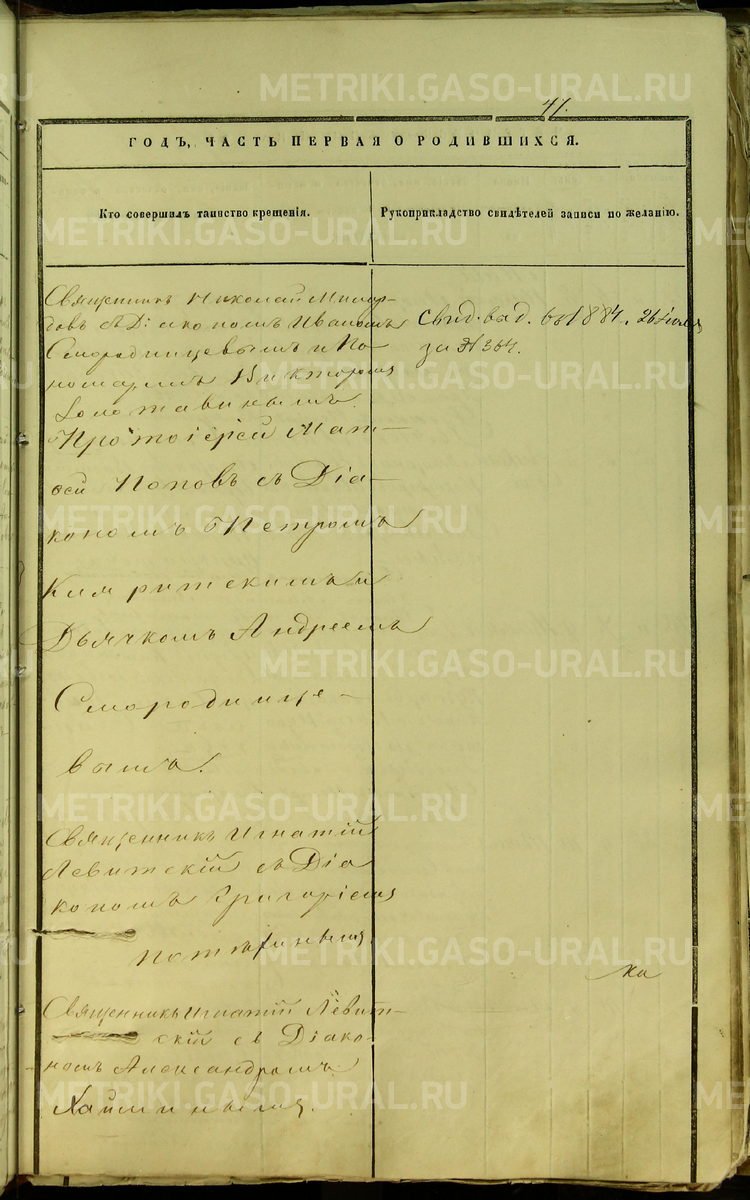 41.
ГОДЪ, ЧАСТЬ ПЕРВАЯ О РОДИВШИХСЯ.
Кто совершилъ таинство крещенія.
Рукоприкладство свидѣтелей записи по желанію.
Священникъ Николай
съ Діакономъ Иваномъ
Смородинцевымъ и По-
номаремъ Викторомъ
Золотавинымъ.
Протоіерей Мат-
ѳей Поповъ съ Діа-
кономъ Петромъ
и
Дьячкомъ Андреемъ
Смородинце-
вымъ.
Священникъ Игнатій
Левитскій съ Діа
кономъ Григоріемъ
Священникъ Игнатій Левит-
скій съ Діако-
номъ Александромъ
Свид. выд. 1884. 26
за № 364.
METRIKI.GASO-URAL.RU
METRIKI.GASO-URAL.RU
METRIKI.GASO-URAL.RU
METRIKI.GASO-URAL.RU
METRIKI.GASO-URAL.RU
METRIKI.GASO-URAL.RU
METRIKI.GASO-URAL.RU
METRIKI.GASO-URAL.RU